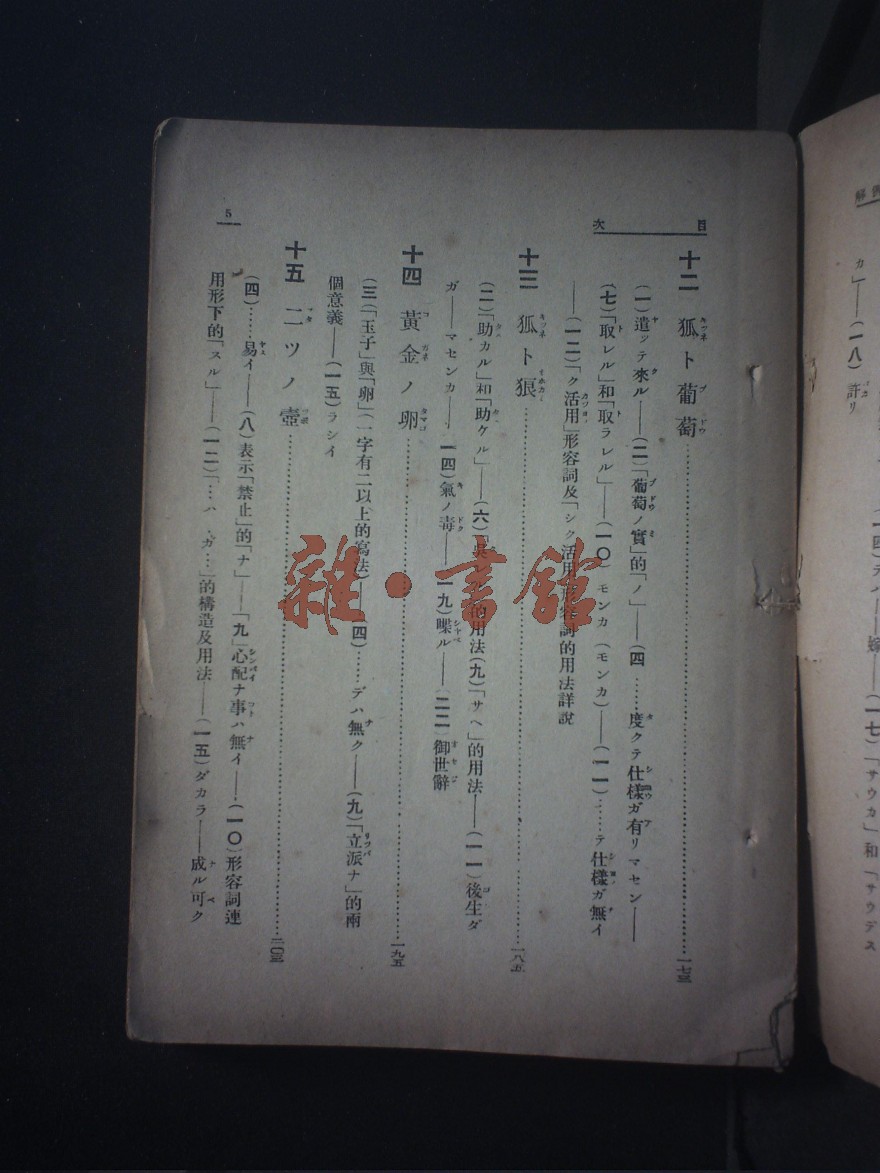 目次
十二 狐ト葡萄 一七三
(一)遣ッテ來ル——(二)「葡萄ノ實」的「ノ」——(四……度クテ仕樣ガ有リマセン——
(七)「取レル」和「取ラレル」——(一〇)モンカ(モンカ)——(一一)……テ仕樣ガ無イ
——(一二)「ク活用」形容詞及「シク活用」形容詞的用法詳說
十三 狐ト狼 一八五
(二)「助カル」和「助ケル」——(六)「的用法(九)「サヘ」的用法——(一一)後生ダ
ガ——マセンカ——一四)氣ノ毒——一九)喋ル——(二二)御世辭
十四 黃金ノ卵 一九五
(三)「玉子」與「卵」(一字有二以上的寫法)——(四)……デハ無ク——(九)「立派ナ」的兩
個意義——(一五)ラシイ
十五 二ツノ壺 二〇三
(四)……易イ——(八)表示「禁止」的「ナ」——「九」心配ナ事ハ無イ——(一〇)形容詞連
用形下的「スル」——(一二)「…ハ…ガ…」的構造及用法——(一五)ダカラ——成ル可ク
5
カ」——(一八)許リ
(一四)デハ——(一七)「サウカ」和「サウデス
雜·書館